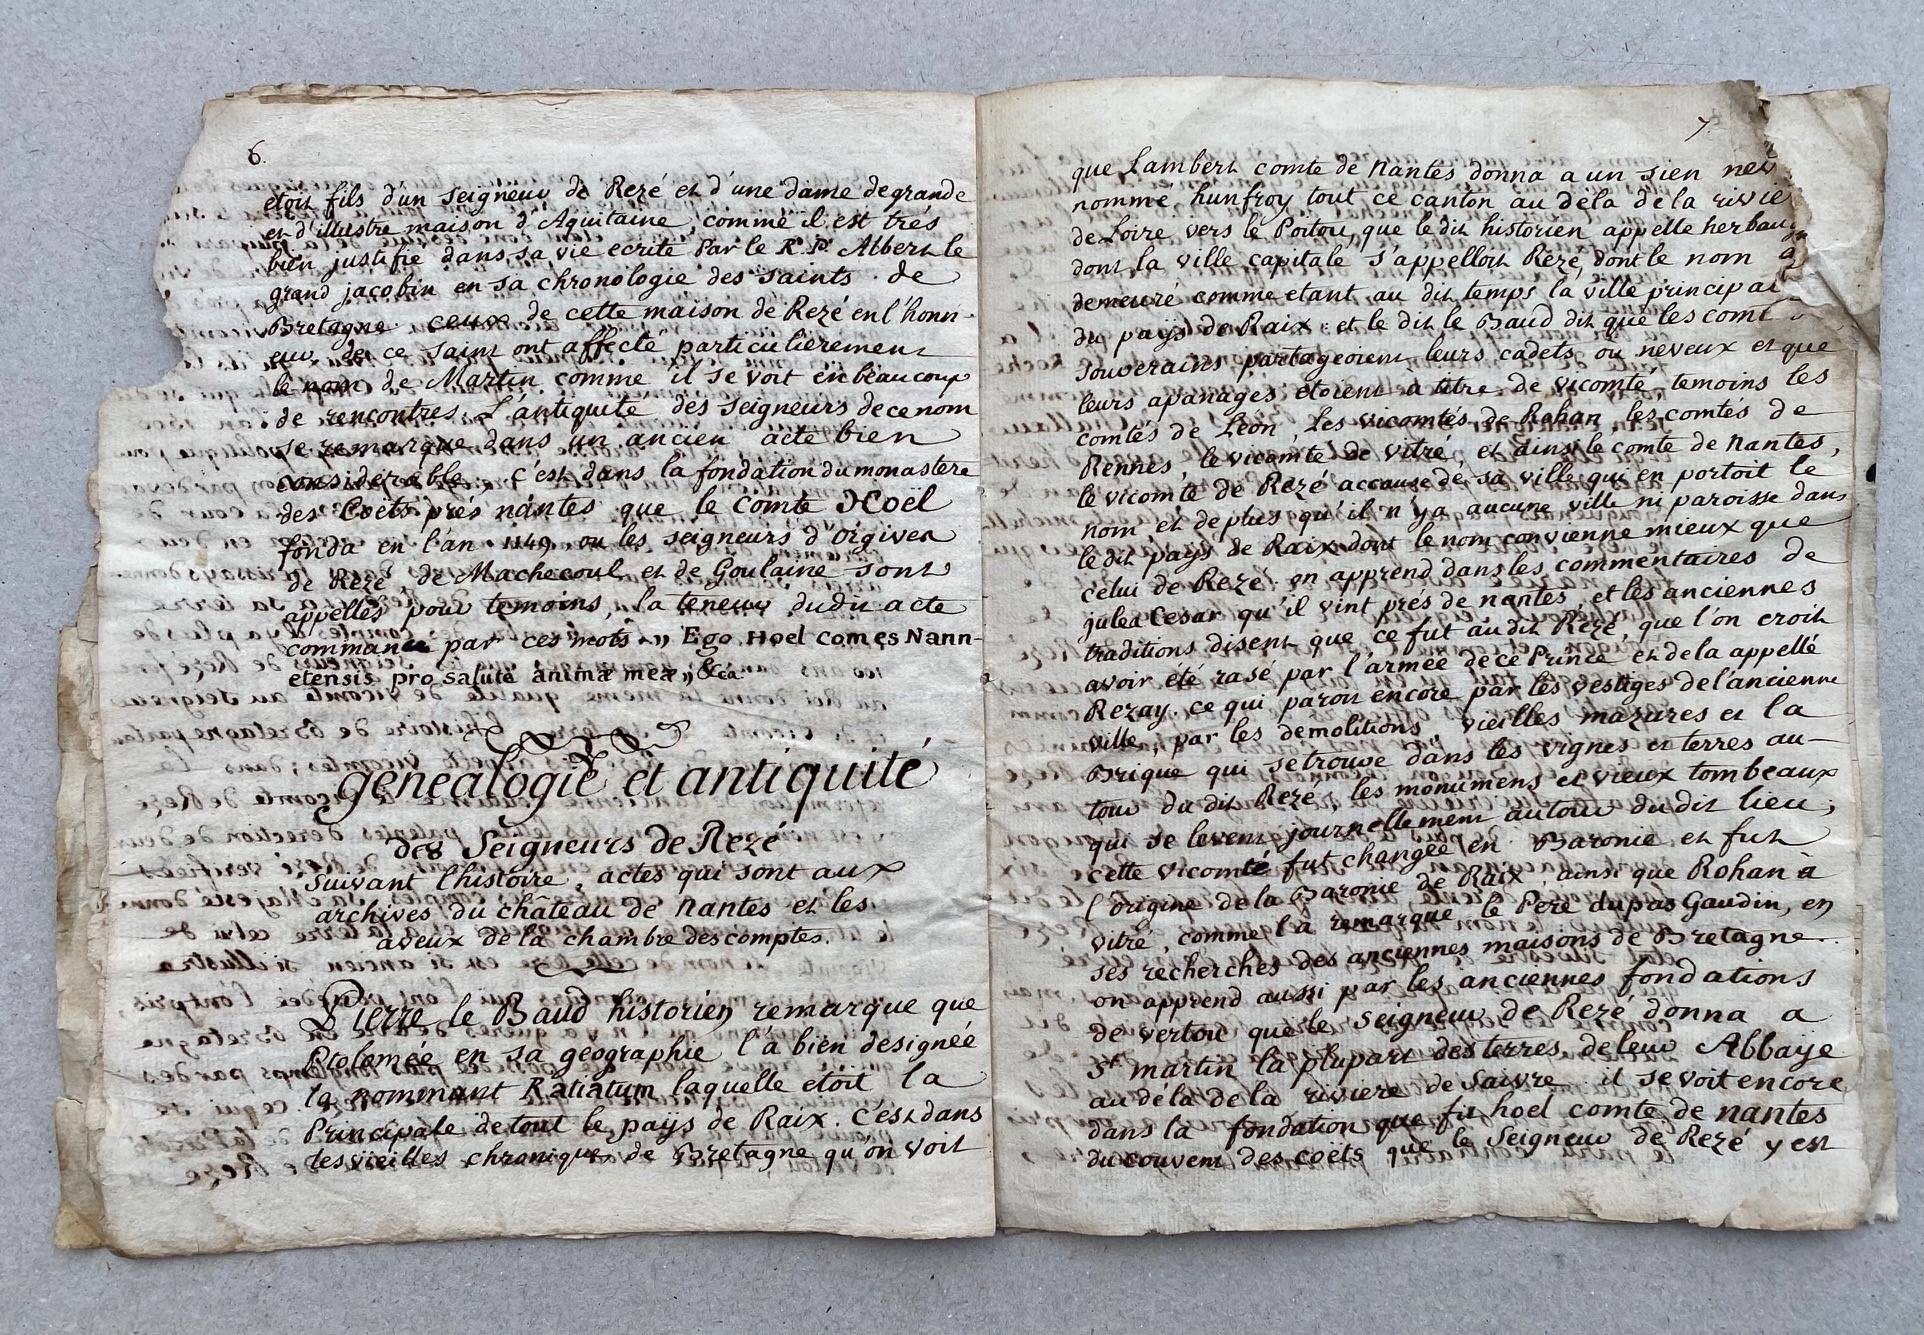 6.
etoit fils d'un seigneur de Rezé et d'une dame de grande
et d'illustre maison d'Aquitaine, comme il est trés
bien justifié dans sa vie ecrite Par le R. P. Albert le
grand jacobin en sa chronologie des saints de
Bretagne. ceux de cette maison de Rezé en l'honn-
eur de ce saint ont affecté particulierement
le nom de Martin comme il se voit en beaucoup
de rencontres. L'antiquité des seigneurs de ce nom
se remarque dans un ancien acte bien
considerable, c'est dans la fondation du monastere
des Coëts prés nantes que le Comte Hoël
fonda en l'an 1149. ou les seigneurs d'Origiver
de Rezé, de Machecoul et de Goulaine sont
appellés pour temoins, la teneur dudit acte
commance par ces mots „ Ego Hoel comes Nann-
etensis pro salute animæ meæ „ &ca.
genealogie et antiquité
des Seigneurs de Rezé
Suivant l'histoire, actes qui sont aux
archives du château de Nantes et les
aveux de la chambre des comptes.
Pierre le Baud historien remarque que
Ptolomée en sa geographie l'à bien designée
la nommant Ratiatum laquelle etoit la
Principale de tout le païs de Raix. C'est dans
les vieilles chroniques de Bretagne qu'on voit
7.
que Lambert comte de Nantes donna a un sien
nommé hunfroy tout ce canton au déla de la
de Loire vers le Poitou, que le dit historien appelle
dont la ville capitale s'appelloit Rezé, dont le nom a
demeuré comme etant au dit temps la ville
du païs de Raix: et le dit le Baud dit que les
souverains partageoient leurs cadets ou neveux et que
leurs apanages étoient a titre de vicomté, temoins les
comtés de Léon, les vicomtés de Rohan, les comtés de
Rennes, le vicomté de vitré, et ainsi le comte de Nantes,
le vicomté de Rezé accause de sa ville qui en portoit le
nom et de plus qu'il n'y a aucune ville ni paroisse dans
le dit païs de Raix dont le nom convienne mieux que
celui de Rezé. on apprend dans les commentaires de
jules Cesar qu'il vint prés de nantes et les anciennes
traditions disent que ce fut au dit Rezé, que l'on croit
avoir été rasé par l'armée de ce Prince et de la appellé
Rezay. ce qui paroit encore par les vestiges de l'ancienne
ville, par les demolitions, vieilles mazures et la
Brique qui se trouve dans les vignes et terres au-
tour du dit Rezé, les monumens et vieux tombeaux
qui se levent journellement autour du dit lieu;
cette vicomté fut changée en Baronie et fut
l'origine de la Baronie de Raix, ainsi que Rohan à
vitré, comme l'a remarque le Pere dupas Gaudin, en
ses recherches des anciennes maisons de Bretagne.
on apprend aussi par les anciennes fondations
de vertou que le seigneur de Rezé donna a
St martin la plupart des terres de leur Abbaÿe
au déla de la riviere de Saivre. il se voit encore
dans la fondation que fit hoel comte de nantes
du couvent des coëts que le Seigneur de Rezé y est